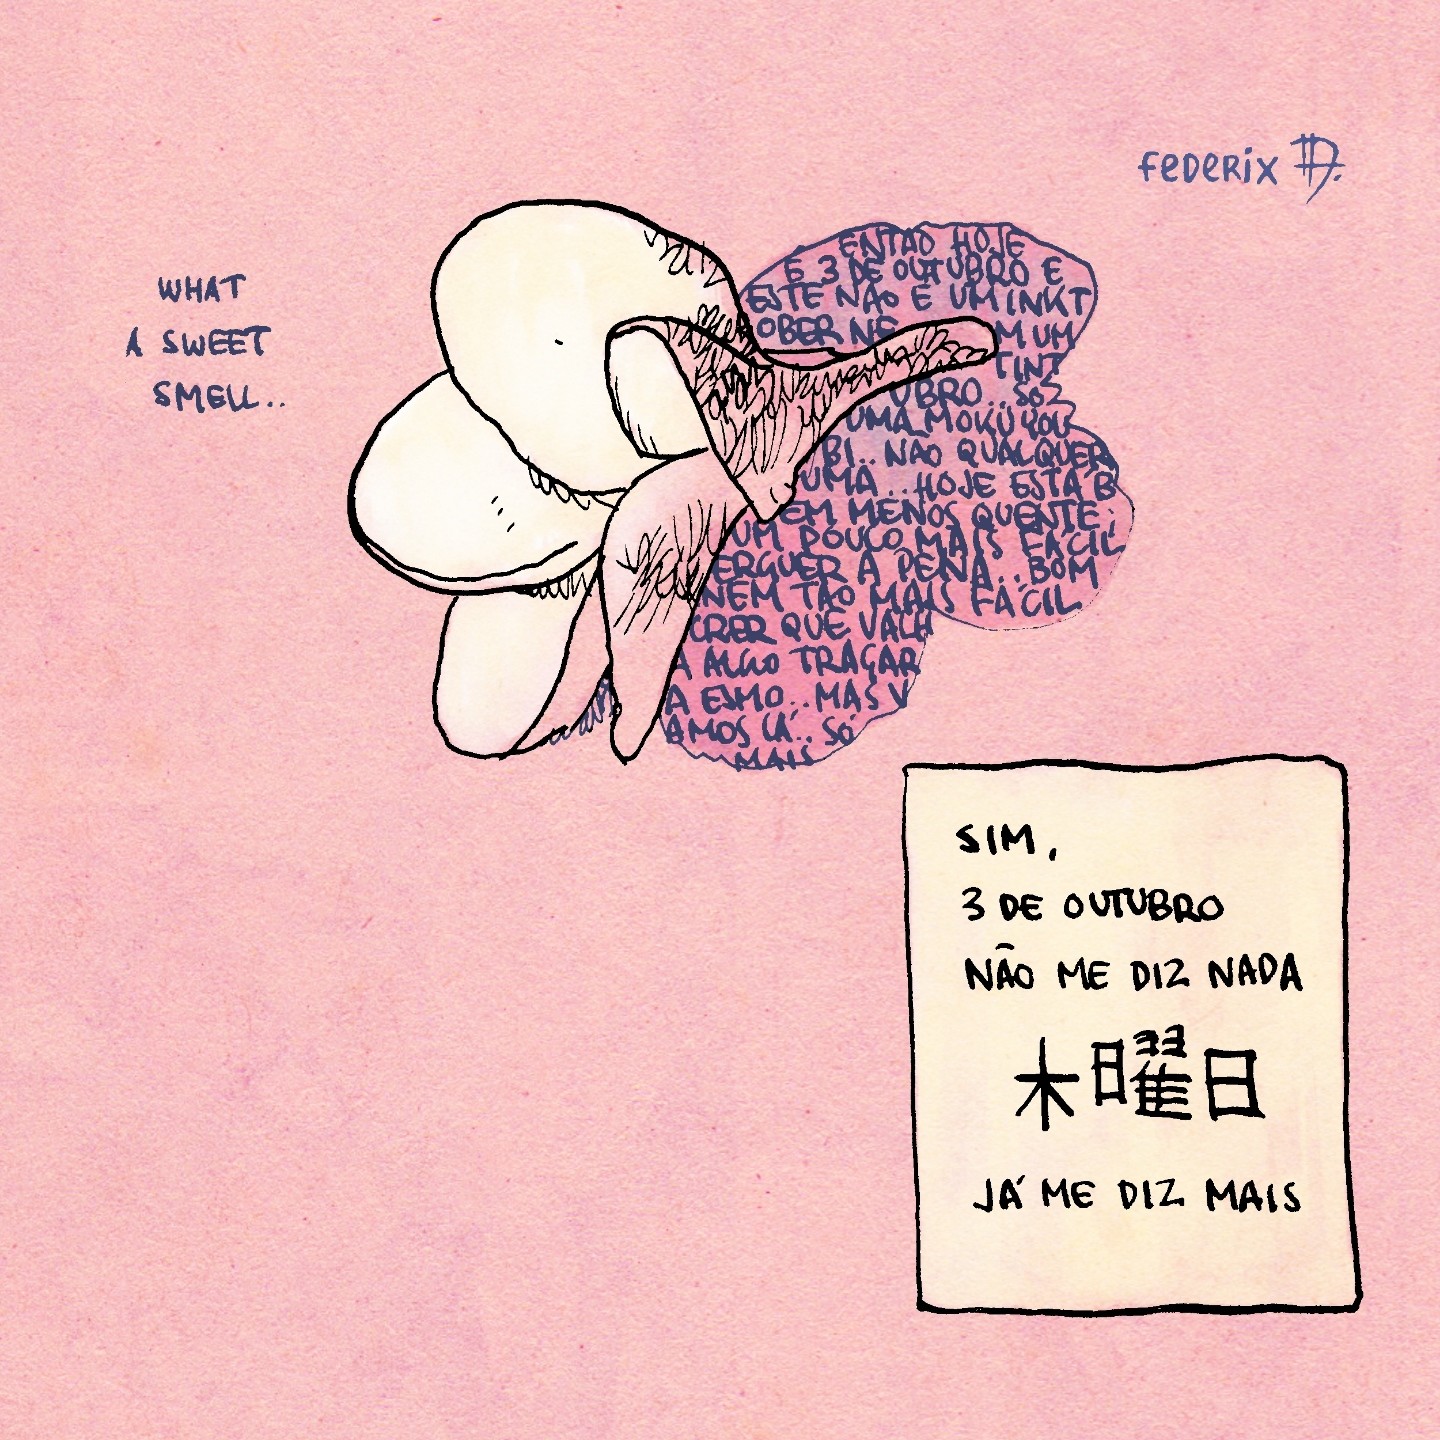 FEDERIX
WHAT
A SWEET
SMELL..
ENTÃO HOJE
É 3 DE OUTUBRO E
ESTE NÃO É UM INKT
OBER NE M UM
TINT
UBRO.. SÓ
UMA MOKUYOU
BI.. NÃO QUALQUER
UMA.. HOJE ESTÁ B
EM MENOS QUENTE.
UM POUCO MAIS FÁCIL
ERGUER A PENA.. BOM
NEM TÃO MAIS FÁCIL
CRER QUE VALH
A ALGO TRAÇAR
A ESMO.. MAS V
AMOS LÁ.. SÓ
MAIS
SIM,
3 DE OUTUBRO
NÃO ME DIZ NADA
木曜日
JÁ ME DIZ MAIS